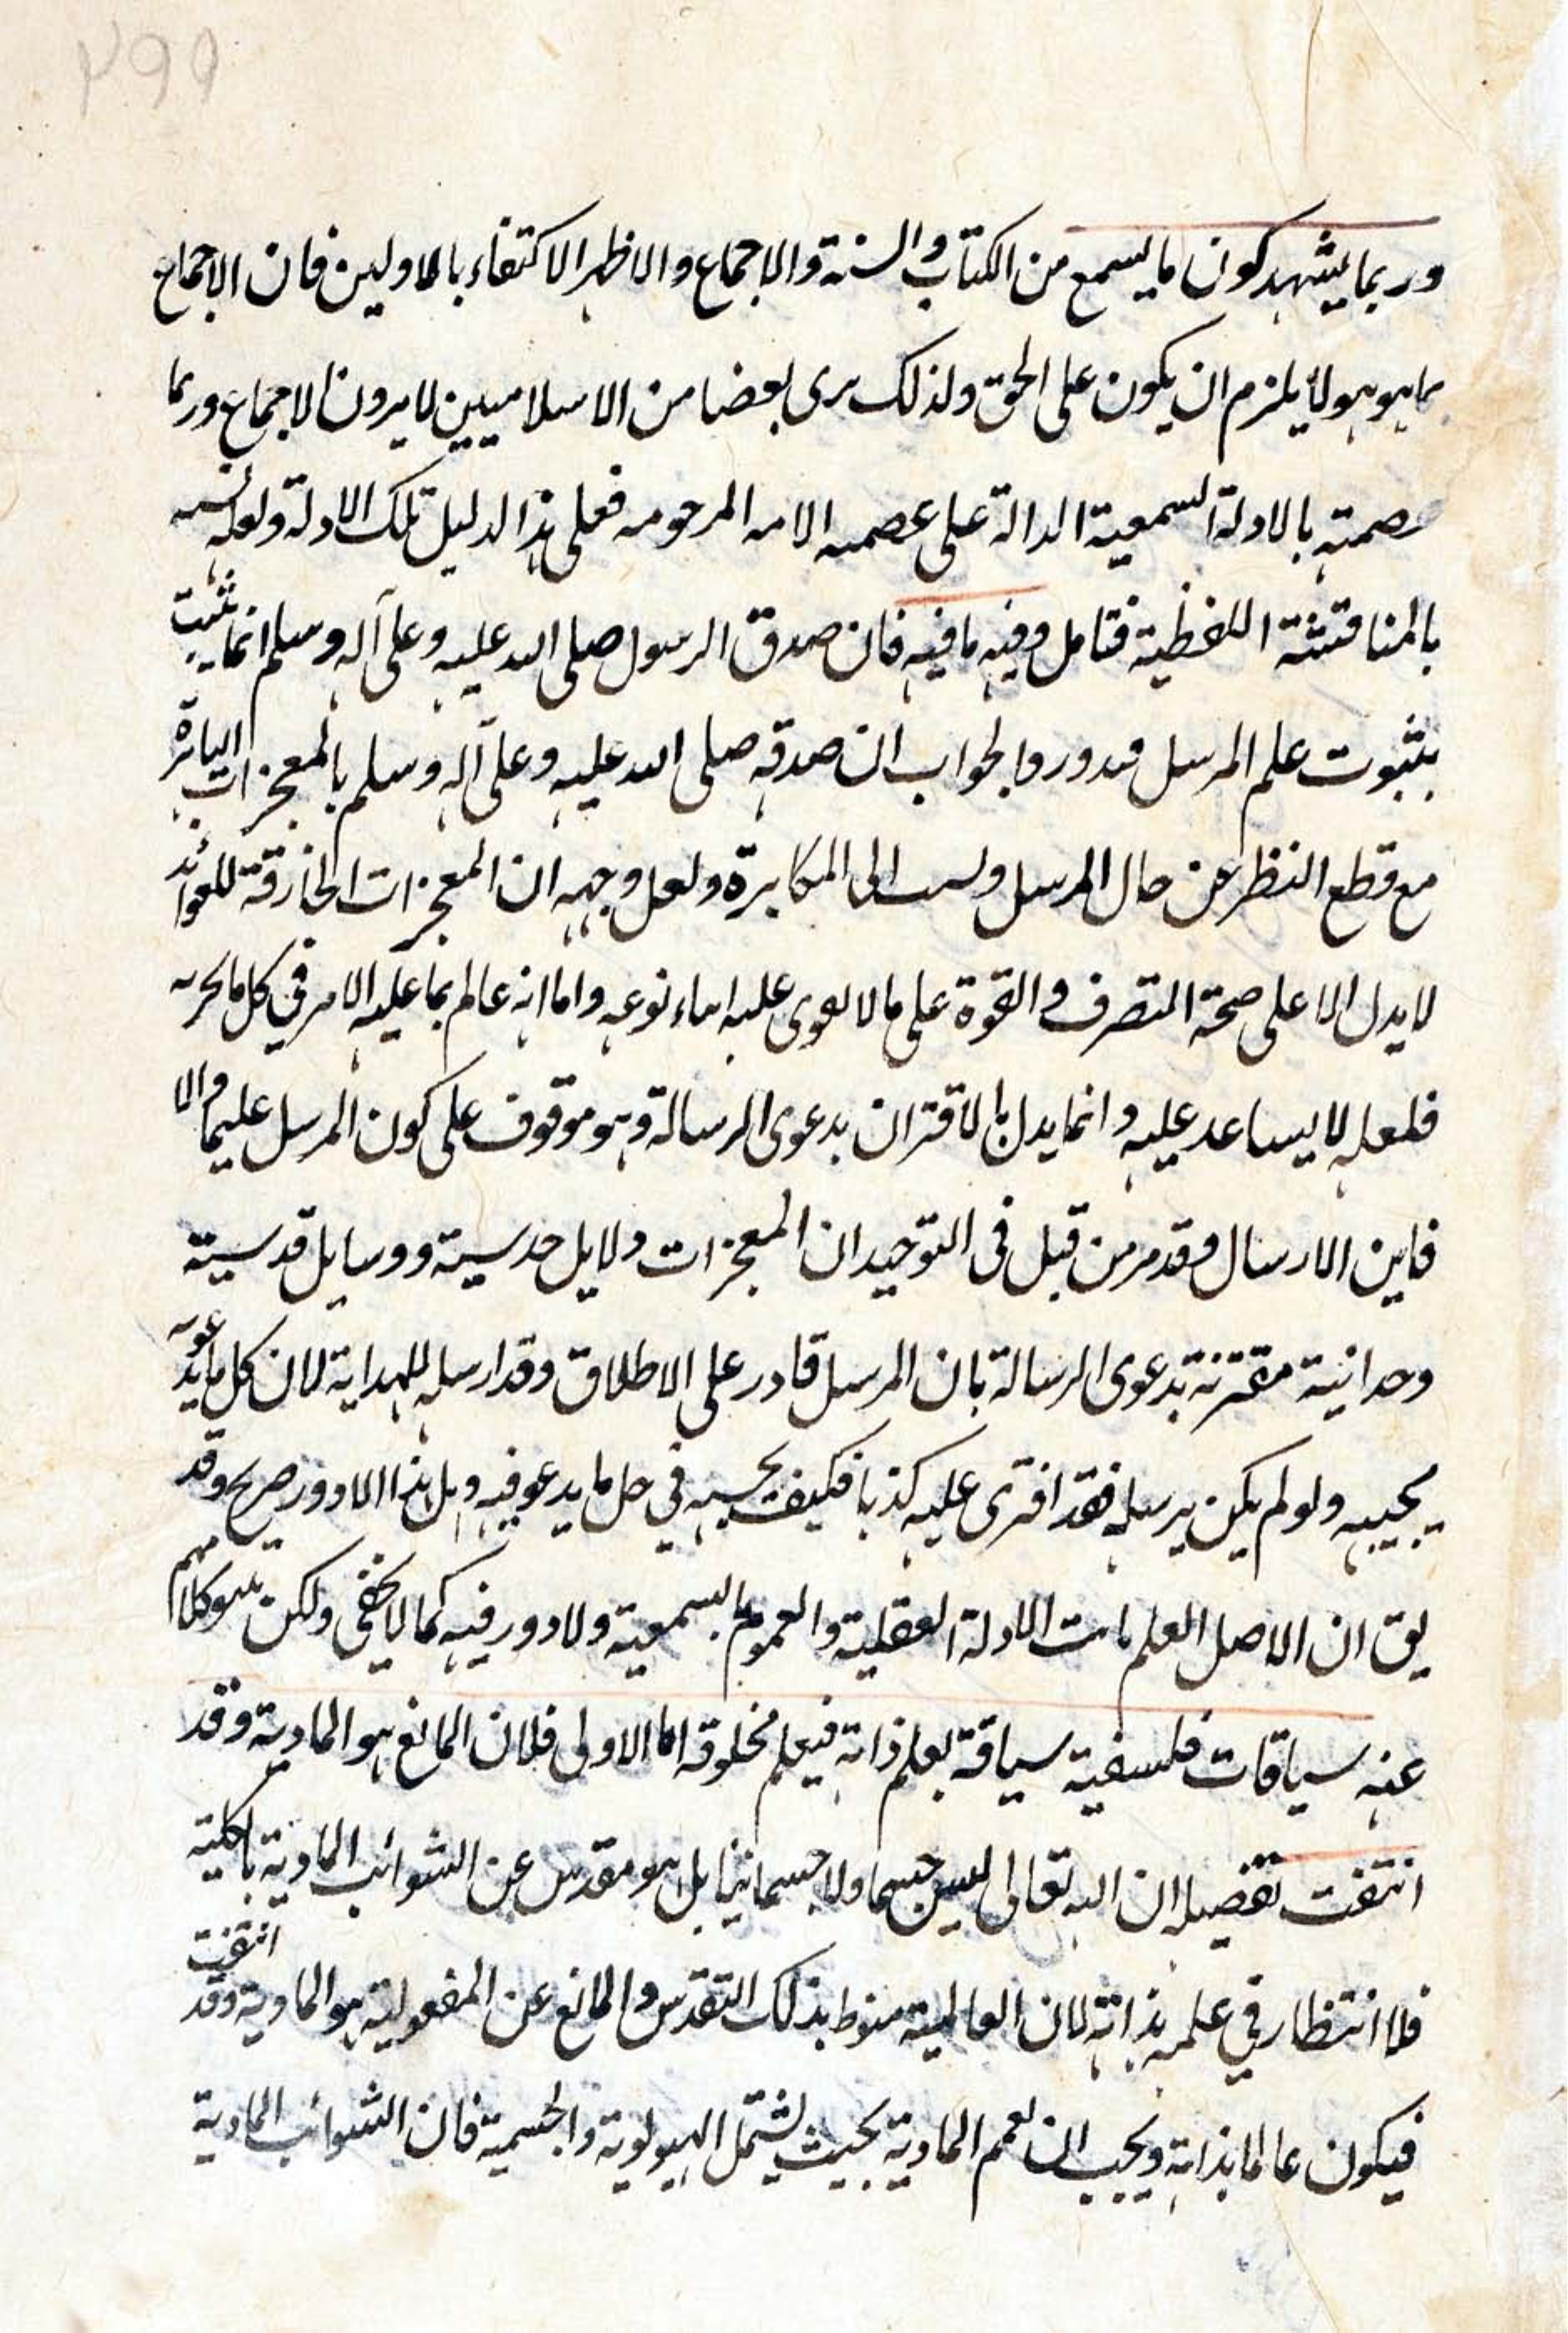 ۲۹۹
وربما يشهد كون ما يسمع من الكتاب والسنة والاجماع والاظهر الاكتفاء بالاولين فان الاجماع
بما هو هو لا يلزم ان يكون على الحق ولذلك يرى بعضا من الاسلاميين لا يرون الاجماع وربما
عصمته بالادلة السمعية الدالة على عصمه الامه المرحومه فعلى هذا الدليل تلك الادلة ولعله
بالمناقشة اللفظية فتامل وفيه ما فيه فان صدق الرسول صلى الله عليه وعلى آله وسلم انما يثبت
بثبوت علم المرسل فدور والجواب ان صدقه صلى الله عليه وعلى آله وسلم بالمعجزات الباهرة
مع قطع النظر عن حال المرسل ونسب الى المكابرة ولعل وجهه ان المعجزات الخارقة للعوائد
لا يدل الا على صحة التصرف والقوة على ما لا يقوى عليه ابناء نوعه واما انه عالم بما عليه الامر في كل ما
فلعله لا يساعد عليه وانما يدل بالاقتران بدعوى الرسالة وهو موقوف على كون المرسل عليما والا
فاين الارسال وقد مر من قبل في التوحيد ان المعجزات دلايل حدسية ووسايل قدسية
وحدانية مقترنة بدعوى الرسالة بان المرسل قادر على الاطلاق وقد ارسله للهداية لان كل ما يدعوه
يجيبه ولو لم يكن يرسله فقد افترى عليه كذبا فكيف يجيبه في جل ما يدعو فيه وهل هذا الا دور صريح وقد
يق ان الاصل العلم بالادلة العقلية والعموم بالسمعية ولا دور فيه كما لا يخفى ولكن كلامهم
عنه سياقات فلسفية سياقة يعلم ذاته فيعلم مخلوقه اما الاولى فلان المانع هو المادية وقد
انتفت تفصيله ان الله تعالى ليس جسما ولا جسمانيا بل هو مقدس عن الشوائب المادية بالكلية
فلا انتظار في علمه بذاته لان العالمية منوط بذلك التقدس والمانع عن المفعولية هو المادية وقد انتفت
فيكون عالما بذاته ويجب ان يعمم المادية بحيث يشتمل الهيولوية والجسمية فان الشوائب المادية